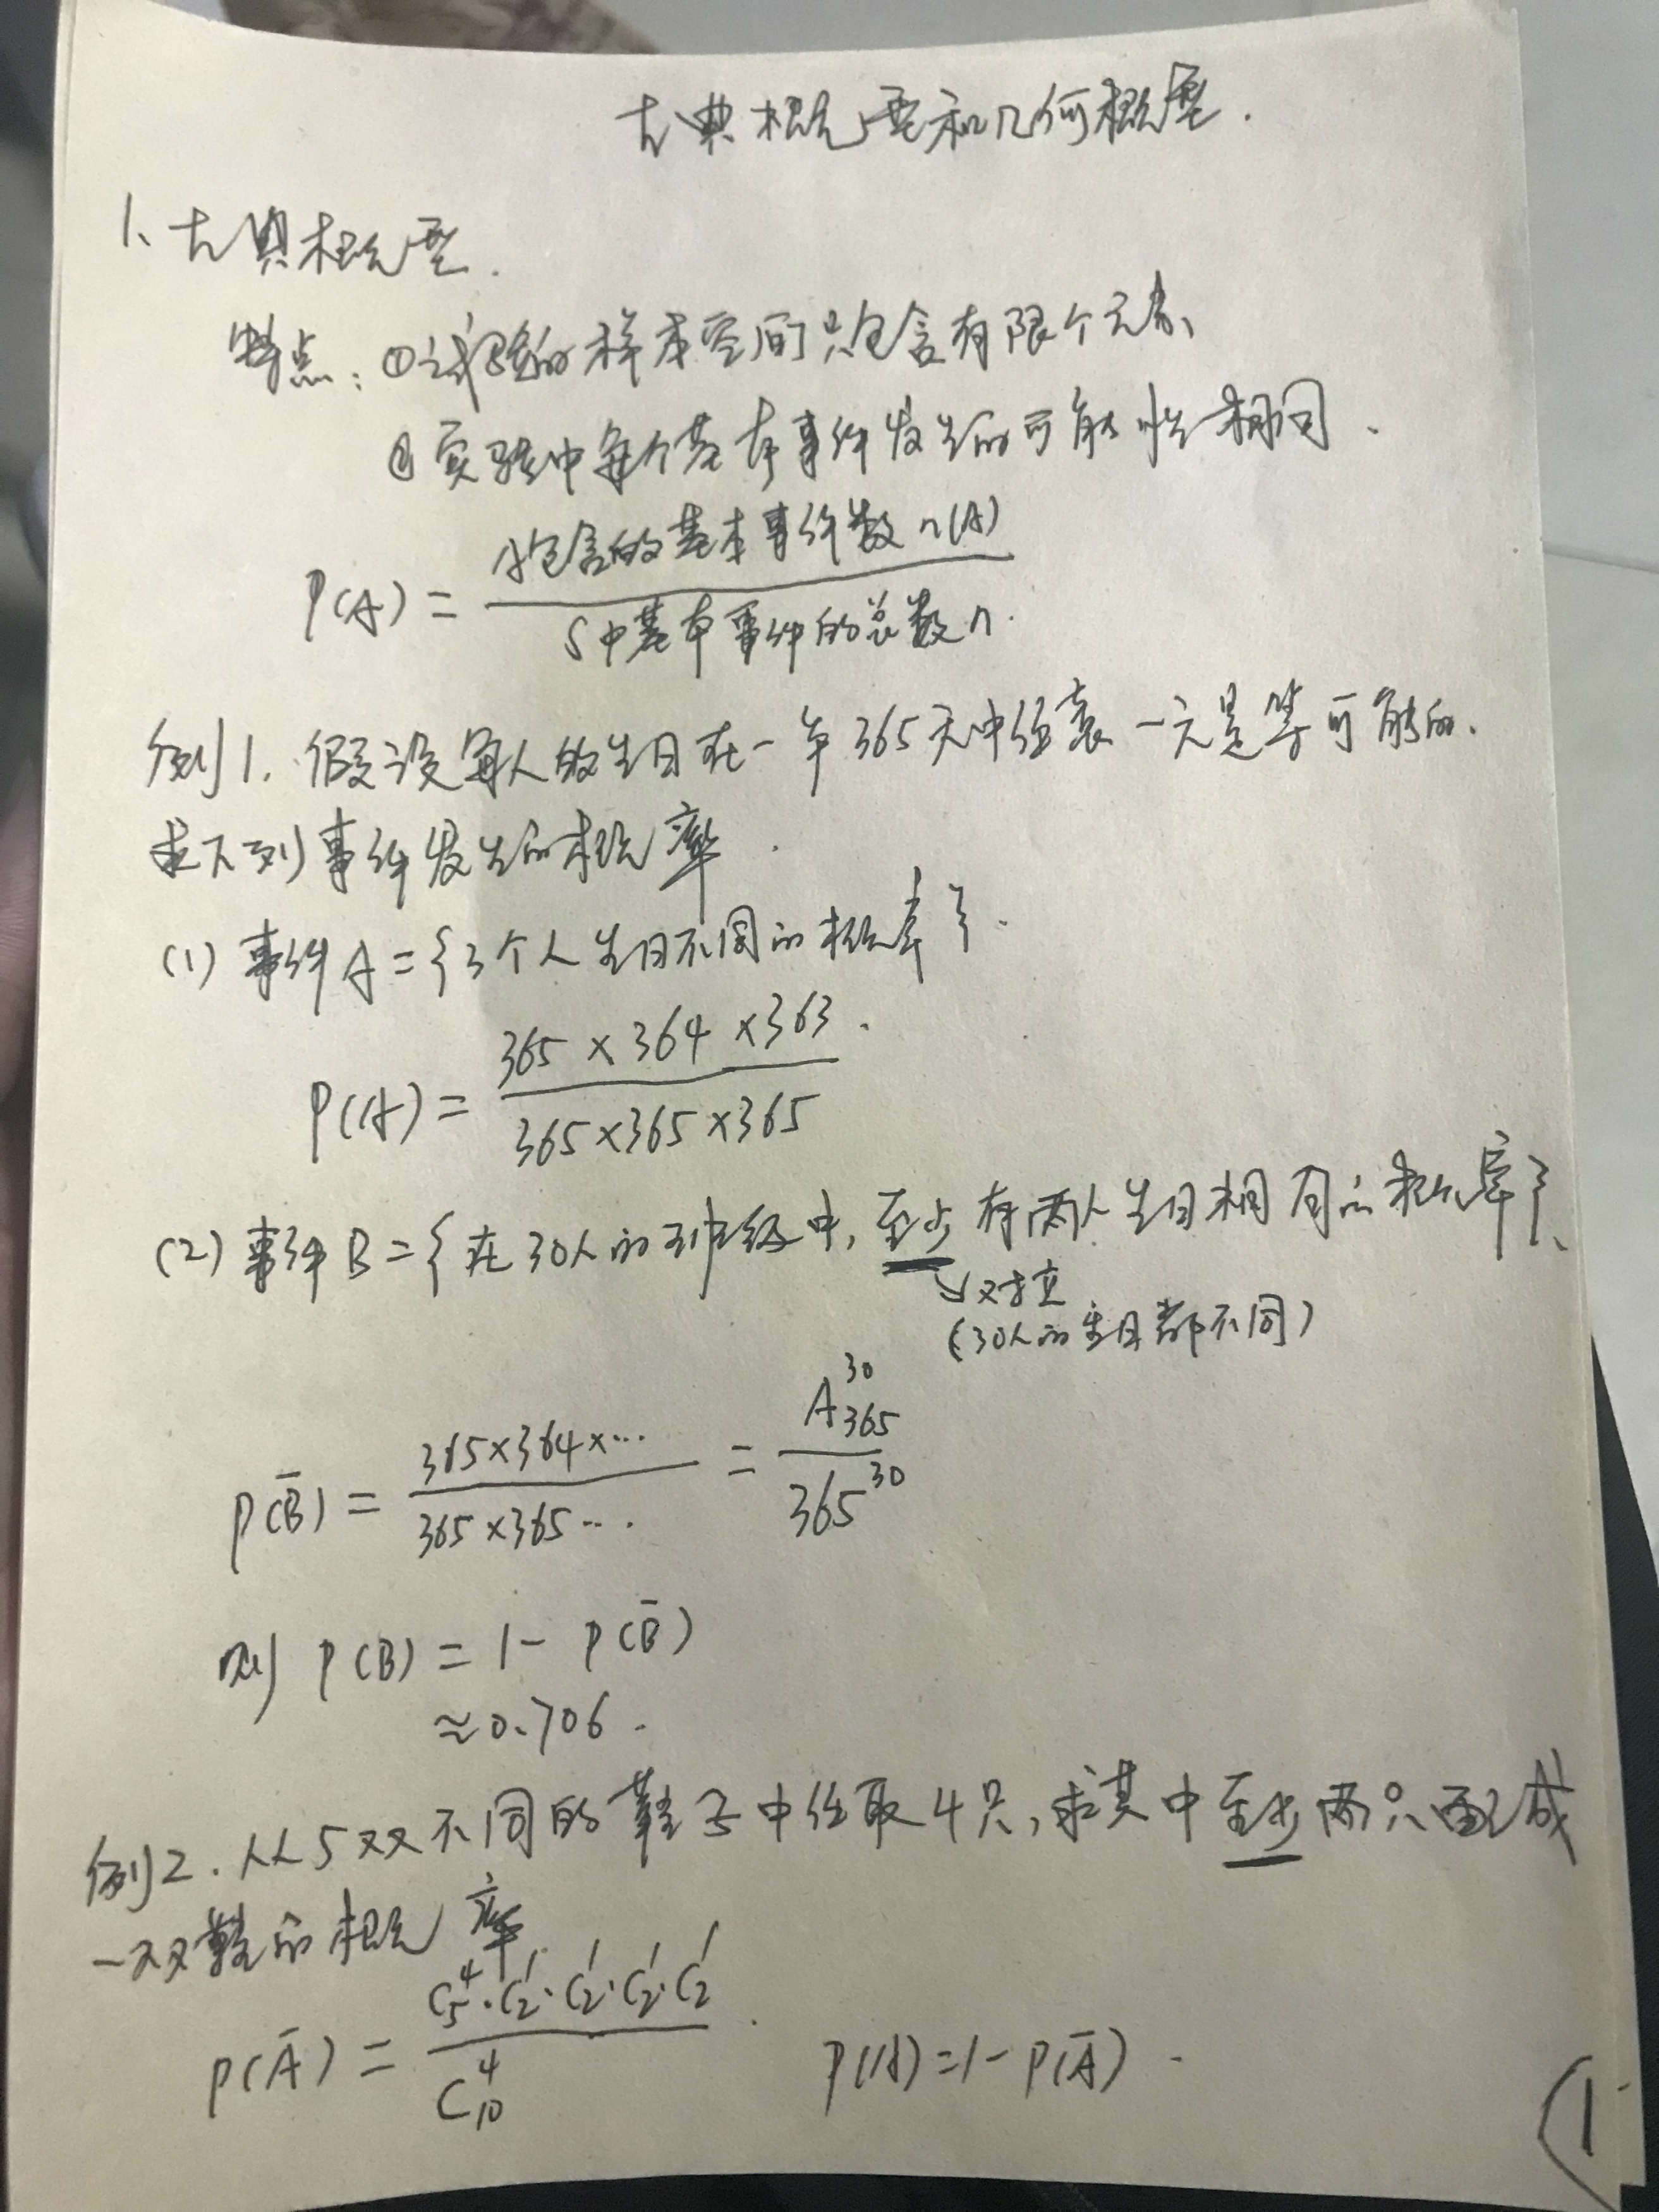 古典概型和几何概型.
1、古典概型.
特点：①试验的样本空间只包含有限个元素、
②实验中每个基本事件发生的可能性相同、
P(A) = A包含的基本事件数n(A) / S中基本事件的总数n
例1. 假设每人的生日在一年365天中任意一天是等可能的.
求下列事件发生的概率.
(1) 事件A={3个人生日不同的概率}.
P(A) = 365×364×363 / 365×365×365 .
(2) 事件B={在30人的班级中, 至少有两人生日相同的概率}、
对立
(30人的生日都不同)
P(B̄) = 365×364×… / 365×365… = A³⁰₃₆₅ / 365³⁰
则 P(B) = 1 - P(B̄)
≈ 0.706 .
例2. 从5双不同的鞋子中任取4只, 求其中至少两只配成
一双鞋的概率
P(Ā) = C₅⁴·C₂¹·C₂¹·C₂¹·C₂¹ / C₁₀⁴ . P(A)=1-P(Ā) .
1